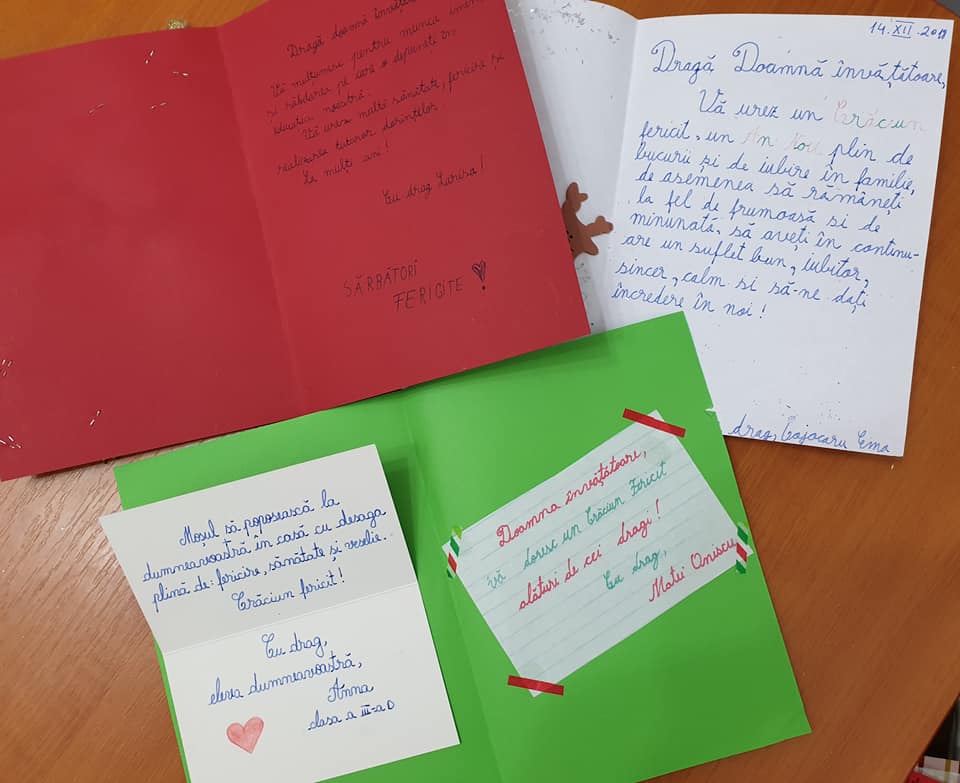 Dragă doamnă învățăt
Vă mulțumesc pentru munca imen
și răbdarea pe care o depuneți în
educația noastră.
Vă urez multă sănătate, fericire și
realizarea tuturor dorințelor.
La mulți ani!
Cu drag Larisa!
SĂRBĂTORI
FERICITE
14.XII.20
Dragă Doamnă învățătoare,
Vă urez un Crăciun
fericit, un An Nou plin de
bucurii și de iubire în familie,
de asemenea să rămâneți
la fel de frumoasă si de
minunată, să aveți în continu-
are un suflet bun, iubitor,
sincer, calm si să-ne dați
încredere în noi!
drag, Cojocaru Ema
Moșul să poposească la
dumneavoastră în casă cu desaga
plină de: fericire, sănătate și veselie.
Crăciun fericit!
Cu drag,
eleva dumneavoastră,
Anna
clasa a III-a D
Doamna învățătoare,
Vă doresc un Crăciun Fericit
alături de cei dragi!
Cu drag,
Matei Oniscu